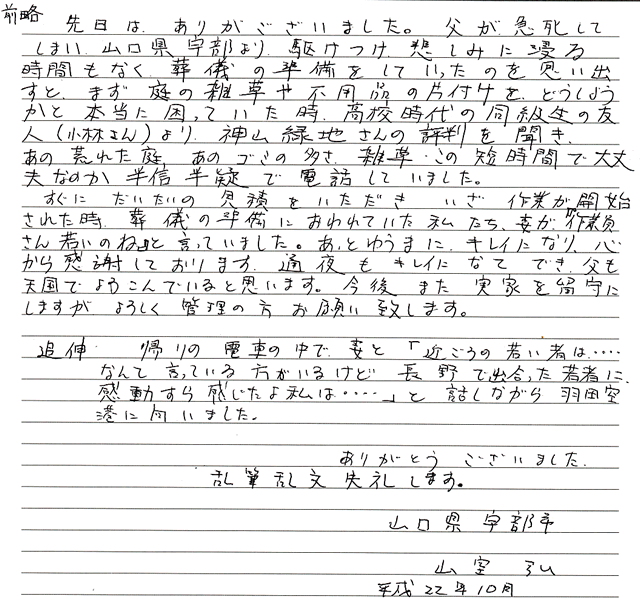 前略
先日は、ありがとございました。父が急死して
しまい、山口県宇部より、駆けつけ、悲しみに浸る
時間もなく、葬儀の準備をしていったのを思い出
すと、まず庭の雑草や不用品の片付けを、どうしよう
かと本当に困っていた時、高校時代の同級生の友
人(小林さん)より、神山緑地さんの評判を聞き、
あの荒れた庭、あのゴミの多さ、雑草・この短時間で大丈
夫なのか半信半疑で電話していました。
すぐにだいたいの見積をいただき いざ 作業が開始
された時、葬儀の準備におわれていた私たち、妻が「作業員
さん若いのね」と言っていました。あっとゆうまに、キレイになり、心
から感謝しております。通夜もキレイになってでき、父も
天国でよろこんでいると思います。今後、また実家を留守に
しますが よろしく管理の方お願い致します。
追伸 帰りの電車の中で、妻と「近ごろの若い者は・・・・
なんて言っている方がいるけど 長野で出合った若者に、
感動すら感じたよ私は・・・・」と話しながら羽田空
港に向いました。
ありがとう ございました。
乱筆乱文失礼します。
山口県宇部市
山室 弘
平成22年10月